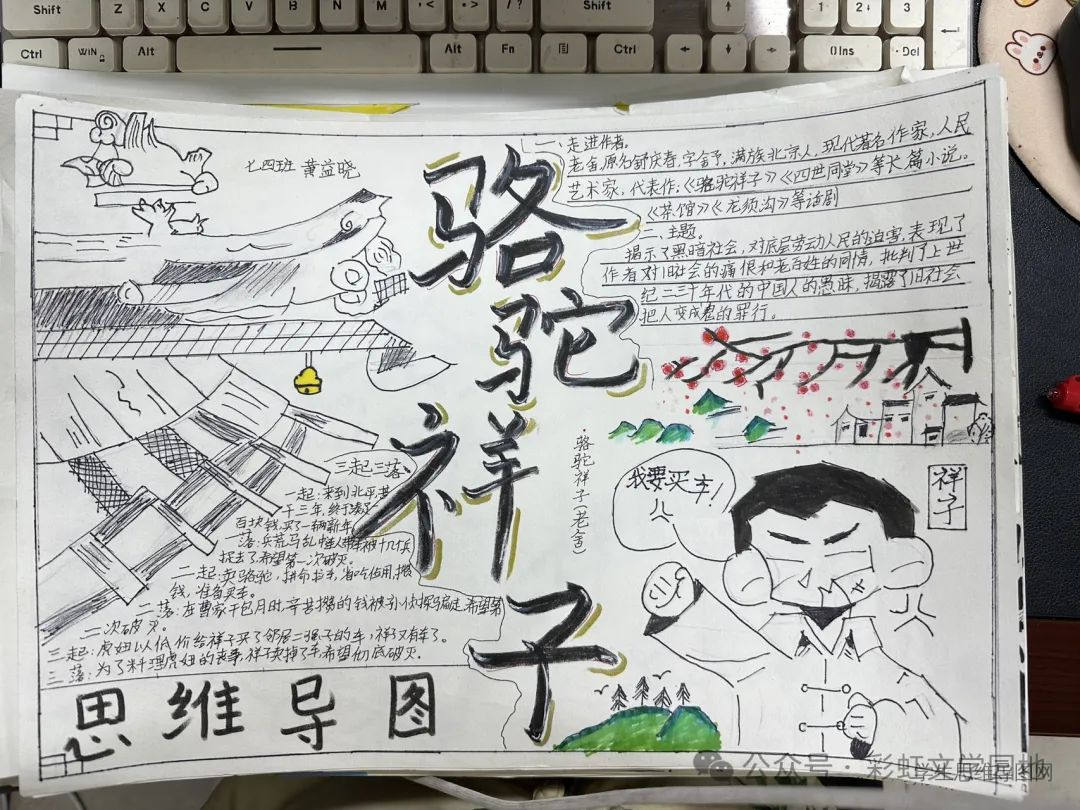 Shift
X
C
V
B
N
M
Shift
1
2
3
Ctrl
WIN
Alt
Alt
Fn
Ctrl
0 Ins
Del
七四班 黄益晓
骆驼祥子
一、走进作者。
老舍,原名舒庆春,字舍予,满族北京人,现代著名作家,人民
艺术家,代表作:《骆驼祥子》《四世同堂》等长篇小说。
《茶馆》《龙须沟》等话剧
二、主题。
揭示了黑暗社会,对底层劳动人民的迫害,表现了
作者对旧社会的痛恨和老百姓的同情,批判了上世
纪二三十年代的中国人的愚昧,揭露了旧社会
把人变成鬼的罪行。
·骆驼祥子(老舍)
我要买车!
祥子
三起三落
一起:来到北平苦
干三年,终于凑足一
百块钱,买了一辆新车
落:兵荒马乱中连人带车被十几兵
捉去了希望第一次破灭。
二起:卖骆驼,拼命拉车,省吃俭用攒
钱,准备买车。
二落:在曹家干包月时,辛苦攒的钱被孙侦探骗走,希望第
二次破灭。
三起:虎妞以低价给祥子买了邻居二强子的车,祥子又有车了。
三落:为了料理虎妞的丧事,祥子卖掉了车,希望彻底破灭。
思维导图
公众号·彩虹文学园地